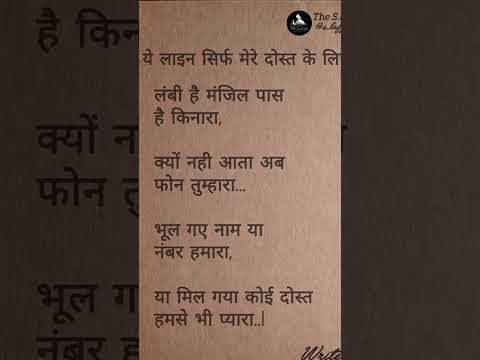 The S.
ये लाइन सिर्फ मेरे दोस्त के लि
लंबी है मंजिल पास
है किनारा,
क्यों नही आता अब
फोन तुम्हारा...
भूल गए नाम या
नंबर हमारा,
या मिल गया कोई दोस्त
हमसे भी प्यारा..!
Write